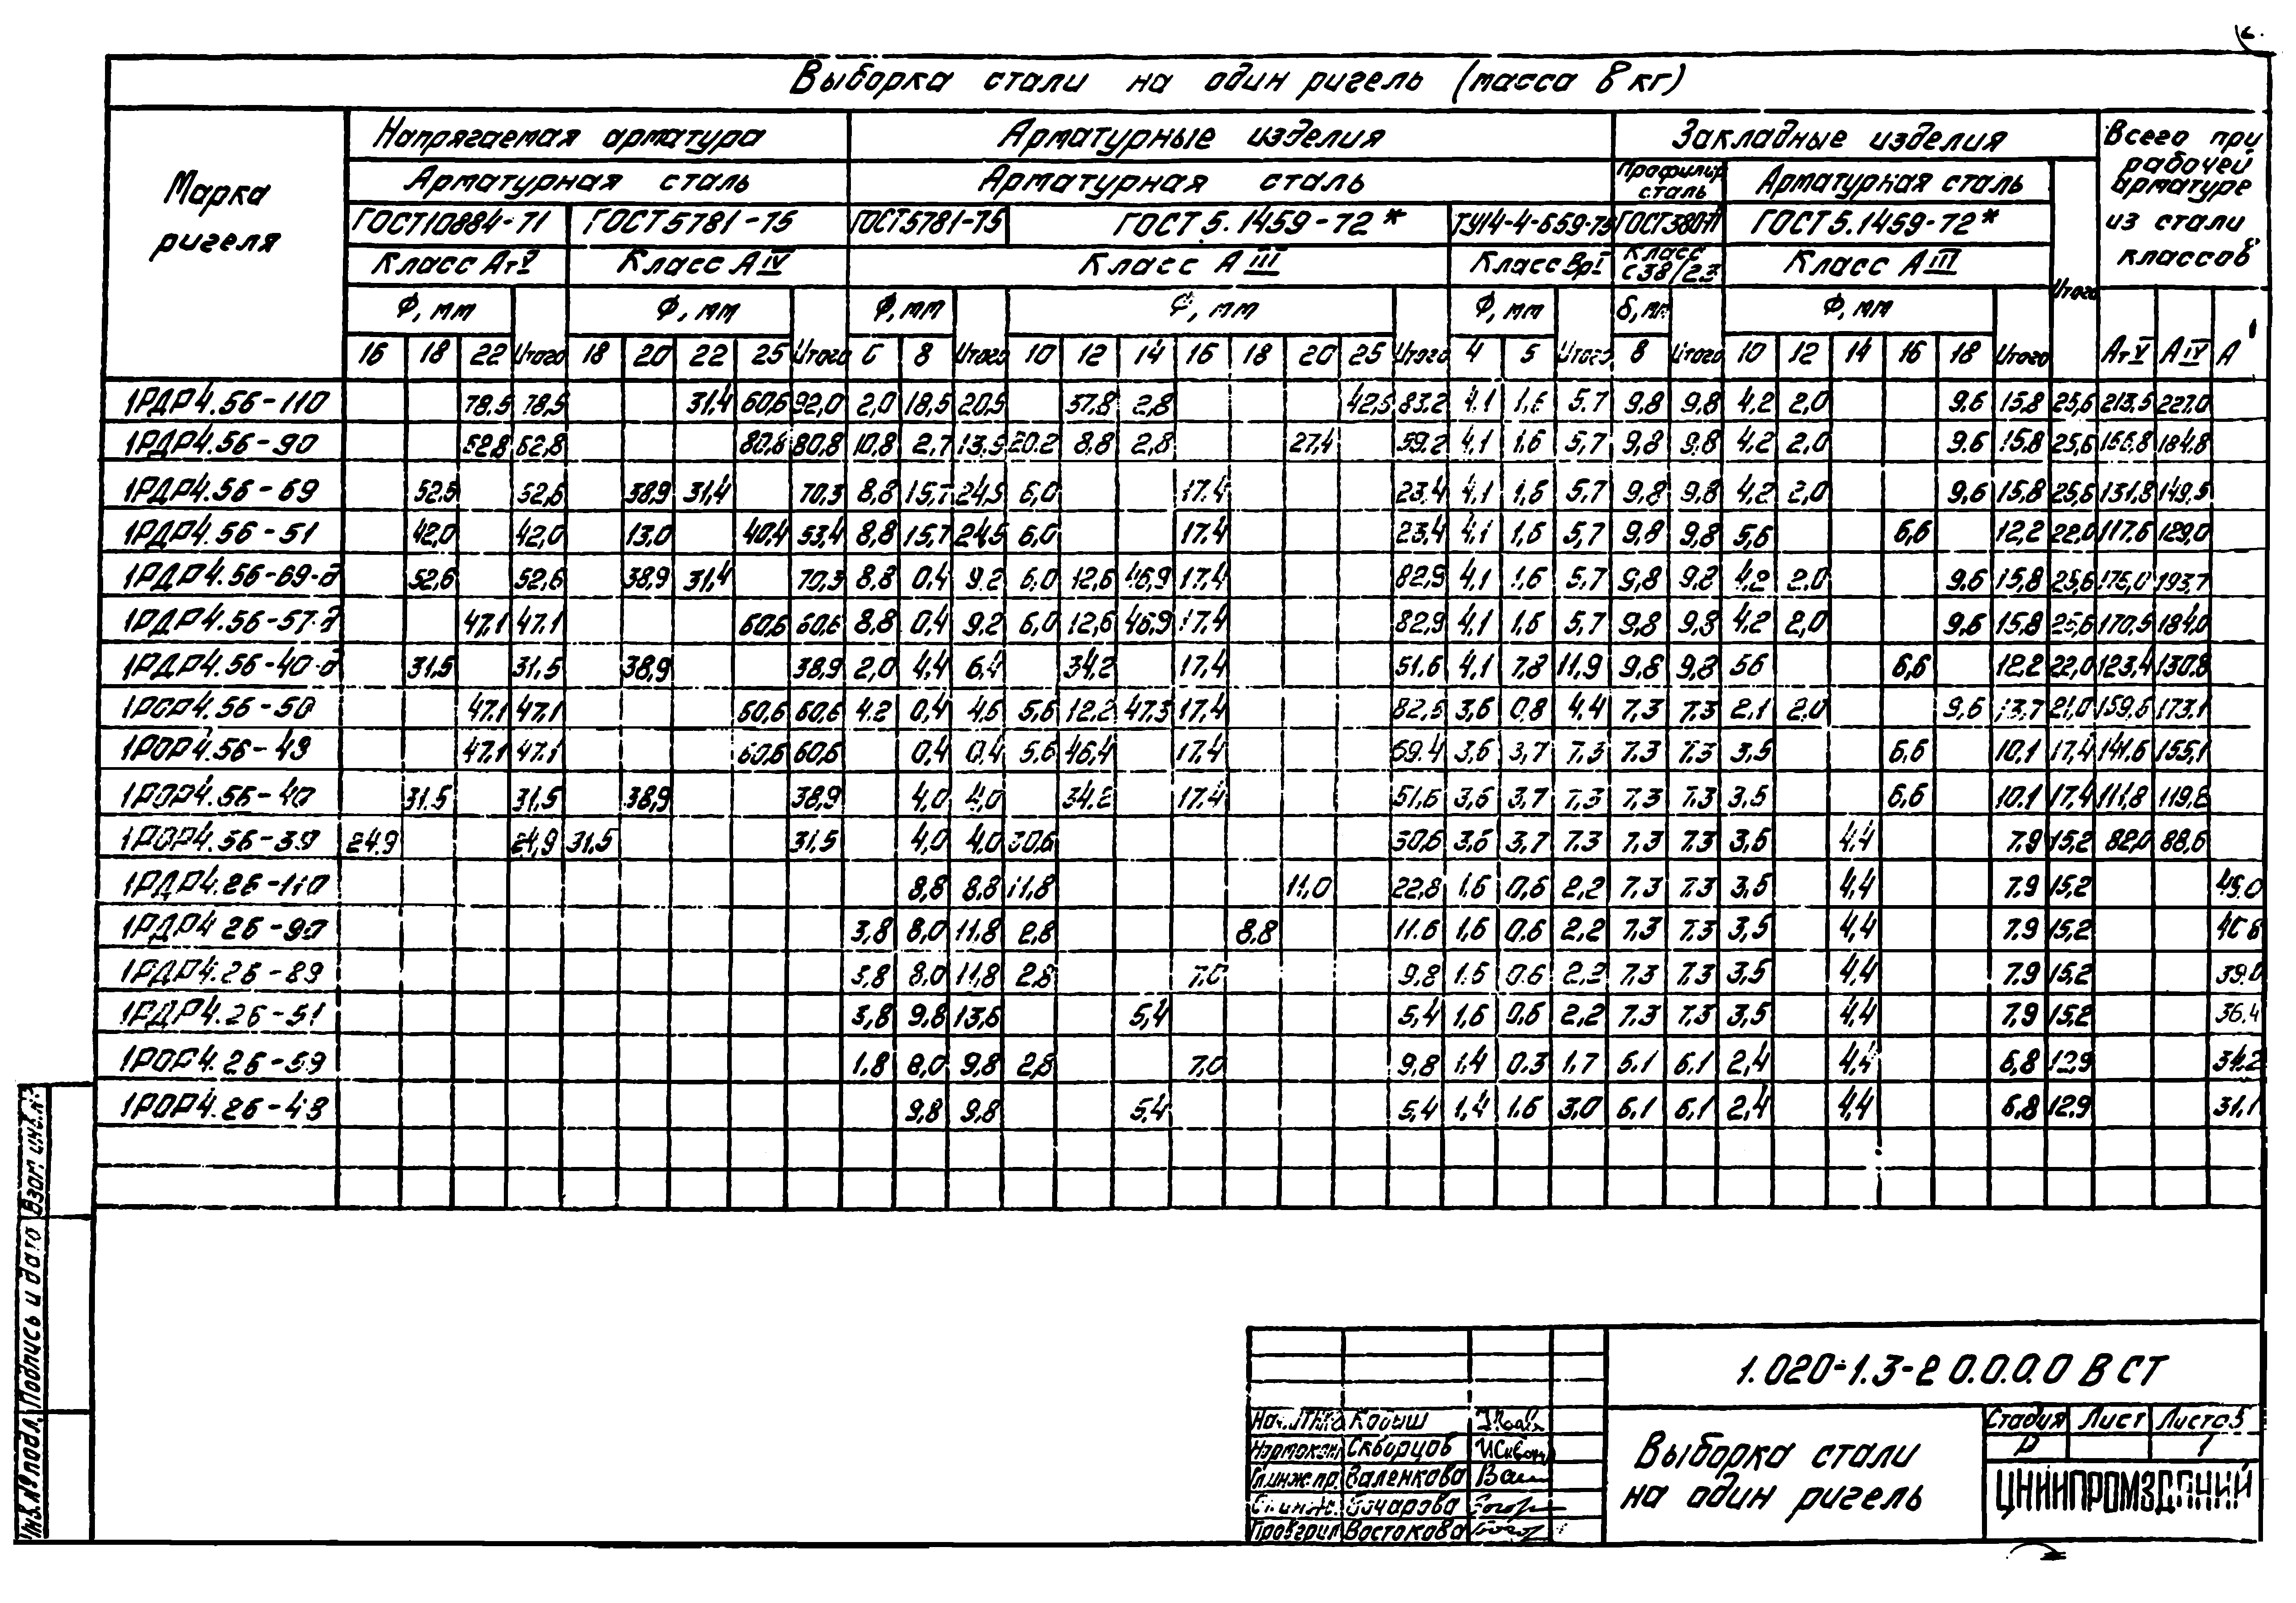 Выборка стали на один ригель (масса в кг)
Марка ригеля
Напрягаемая арматура
Арматурные изделия
Закладные изделия
Всего при рабочей арматуре из стали классов
Арматурная сталь
Арматурная сталь
Профильн сталь
Арматурная сталь
ГОСТ10884-71
ГОСТ5781-75
ГОСТ5781-75
ГОСТ5.1459-72*
ТУ14-4-659-75
ГОСТ380-71
ГОСТ5.1459-72*
Класс АтV
Класс АIV
Класс АIII
Класс ВрI
Класс С38/23
Класс АIII
Итого
Ф, мм Ф, мм Ф, мм Ф, мм Ф, мм δ, мм Ф, мм
16 18 22 Итого 18 20 22 25 Итого 6 8 Итого 10 12 14 16 18 20 25 Итого 4 5 Итого 8 Итого 10 12 14 16 18 Итого АтV АIV А
1РДР4.56-110 78,5 78,5 31,4 60,6 92,0 2,0 18,5 20,5 37,8 2,8 42,5 83,2 4,1 1,6 5,7 9,8 9,8 4,2 2,0 9,6 15,8 25,6 213,5 227,0
1РДР4.56-90 62,8 62,8 80,8 80,8 10,8 2,7 13,5 20,2 8,8 2,8 27,4 59,2 4,1 1,6 5,7 9,8 9,8 4,2 2,0 9,6 15,8 25,6 166,8 184,8
1РДР4.56-69 52,6 52,6 38,9 31,4 70,3 8,8 15,7 24,5 6,0 17,4 23,4 4,1 1,6 5,7 9,8 9,8 4,2 2,0 9,6 15,8 25,6 131,8 149,5
1РДР4.56-51 42,0 42,0 13,0 40,4 53,4 8,8 15,7 24,5 6,0 17,4 23,4 4,1 1,6 5,7 9,8 9,8 5,6 6,6 12,2 22,0 117,6 129,0
1РДР4.56-69-д 52,6 52,6 38,9 31,4 70,3 8,8 0,4 9,2 6,0 12,6 46,9 17,4 82,9 4,1 1,6 5,7 9,8 9,8 4,2 2,0 9,6 15,8 25,6 176,0 193,7
1РДР4.56-57-д 47,1 47,1 60,6 60,6 8,8 0,4 9,2 6,0 12,6 46,9 17,4 82,9 4,1 1,6 5,7 9,8 9,8 4,2 2,0 9,6 15,8 25,6 170,5 184,0
1РДР4.56-40-д 31,5 31,5 38,9 38,9 2,0 4,4 6,4 34,2 17,4 51,6 4,1 7,8 11,9 9,8 9,8 5,6 6,6 12,2 22,0 123,4 130,8
1РОР4.56-50 47,1 47,1 60,6 60,6 4,2 0,4 4,6 5,6 12,2 47,3 17,4 82,5 3,6 0,8 4,4 7,3 7,3 2,1 2,0 9,6 13,7 21,0 159,6 173,1
1РОР4.56-49 47,1 47,1 60,6 60,6 0,4 0,4 5,6 46,4 17,4 69,4 3,6 3,7 7,3 7,3 7,3 3,5 6,6 10,1 17,4 141,6 155,1
1РОР4.56-40 31,5 31,5 38,9 38,9 4,0 4,0 34,2 17,4 51,6 3,6 3,7 7,3 7,3 7,3 3,5 6,6 10,1 17,4 111,8 119,2
1РОР4.56-39 24,9 24,9 31,5 31,5 4,0 4,0 30,6 30,6 3,6 3,7 7,3 7,3 7,3 3,5 4,4 7,9 15,2 82,0 88,6
1РДР4.26-110 8,8 8,8 11,8 11,0 22,8 1,6 0,6 2,2 7,3 7,3 3,5 4,4 7,9 15,2 49,0
1РДР4.26-90 3,8 8,0 11,8 2,8 8,8 11,6 1,6 0,6 2,2 7,3 7,3 3,5 4,4 7,9 15,2 40,8
1РДР4.26-89 3,8 8,0 11,8 2,8 7,0 9,8 1,6 0,6 2,2 7,3 7,3 3,5 4,4 7,9 15,2 39,0
1РДР4.26-51 3,8 9,8 13,6 5,4 5,4 1,6 0,6 2,2 7,3 7,3 3,5 4,4 7,9 15,2 36,4
1РОР4.26-59 1,8 8,0 9,8 2,8 7,0 9,8 1,4 0,3 1,7 6,1 6,1 2,4 4,4 6,8 12,9 34,2
1РОР4.26-43 9,8 9,8 5,4 5,4 1,4 1,6 3,0 6,1 6,1 2,4 4,4 6,8 12,9 31,1
Взам. инв. №
Подпись и дата
Инв. № подл.
1.020-1.3-2 0.0.0.0 ВСТ
Кодыш
Нормокон. Скворцов
Гл.инж.пр. Заленкова
Бочарова
Проверил Востокова
Выборка стали на один ригель
Стадия Лист Листов
Р 1
ЦНИИПРОМЗДАНИЙ